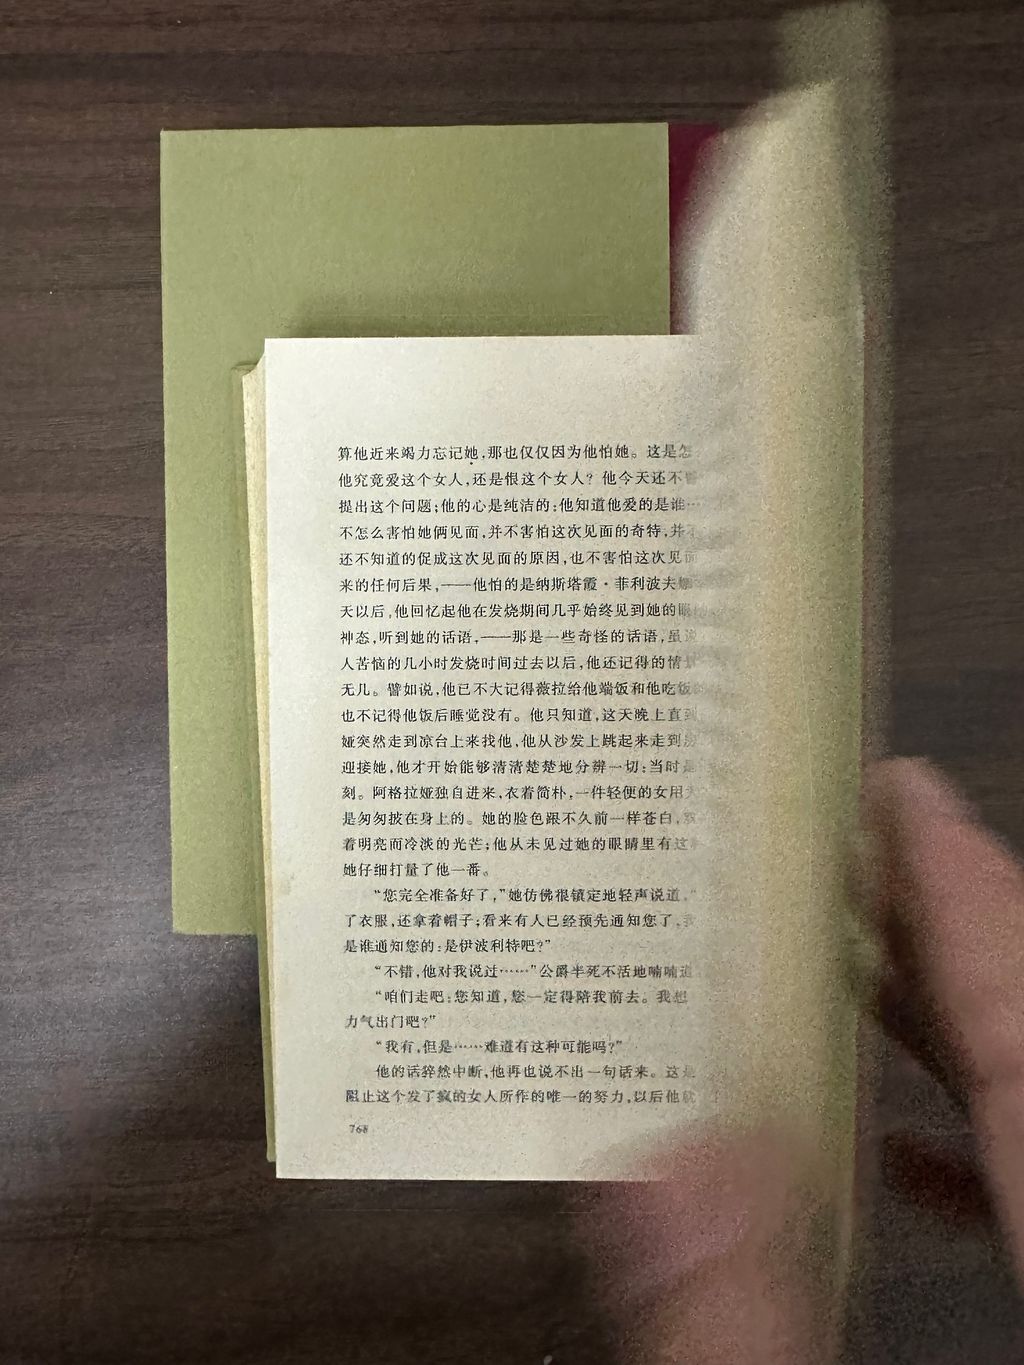 算他近来竭力忘记她,那也仅仅因为他怕她。这是怎
他究竟爱这个女人,还是恨这个女人?他今天还不
提出这个问题;他的心是纯洁的:他知道他爱的是谁……
不怎么害怕她俩见面,并不害怕这次见面的奇特,并
还不知道的促成这次见面的原因,也不害怕这次见
来的任何后果,——他怕的是纳斯塔霞·菲利波夫
天以后,他回忆起他在发烧期间几乎始终见到她的眼
神态,听到她的话语,——那是一些奇怪的话语,虽
人苦恼的几小时发烧时间过去以后,他还记得的情
无几。譬如说,他已不大记得薇拉给他端饭和他吃饭
也不记得他饭后睡觉没有。他只知道,这天晚上直到
娅突然走到凉台上来找他,他从沙发上跳起来走到
迎接她,他才开始能够清清楚楚地分辨一切:当时是
刻。阿格拉娅独自进来,衣着简朴,一件轻便的女用
是匆匆披在身上的。她的脸色跟不久前一样苍白,
着明亮而冷淡的光芒;他从未见过她的眼睛里有这
她仔细打量了他一番。
“您完全准备好了,”她仿佛很镇定地轻声说道,“
了衣服,还拿着帽子;看来有人已经预先通知您了,
是谁通知您的:是伊波利特吧?”
“不错,他对我说过……”公爵半死不活地喃喃道
“咱们走吧:您知道,您一定得陪我前去。我想
力气出门吧?”
“我有,但是……难道有这种可能吗?”
他的话猝然中断,他再也说不出一句话来。这是
阻止这个发了疯的女人所作的唯一的努力,以后他就
768